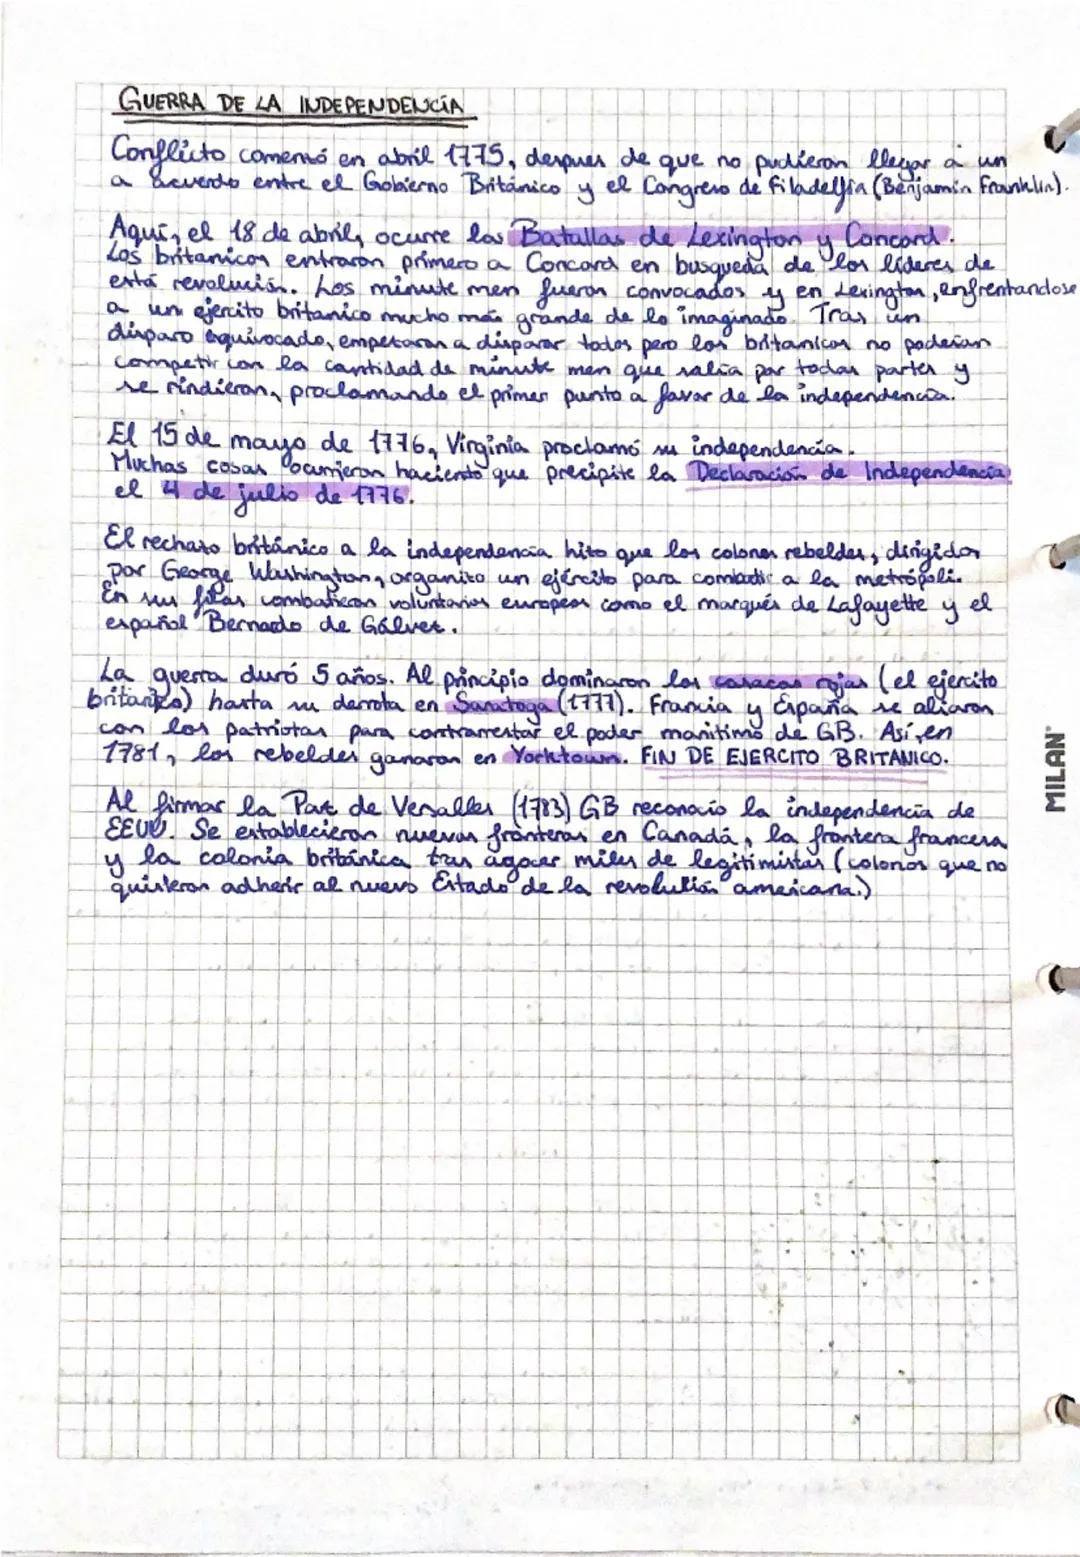 GUERRA DE LA INDEPENDENCIA
Conflicto comenzó en abril 1775, despues de que no pudieron llegar a un
a acuerdo entre el Gobierno Británico y el Congreso de Filadelfia (Benjamin Franklin).
Aquí, el 18 de abril, ocurre las Batallas de Lexington y Concord.
Los britanicos entraron primero a Concord en busqueda de los líderes de
está revolución. Los minute men fueron convocados y en Lexington, enfrentandose
a un ejercito britanico mucho más grande de lo imaginado. Tras un
disparo equivocado, empezaron a disparar todos pero los britanicos no poderian
competir con la cantidad de minute men que salia por todas partes y
se rindieron, proclamando el primer punto a favor de la independencia.
El 15 de mayo de 1776, Virginia proclamó su independencia.
Muchas cosas ocurrieron haciendo que precipite la Declaración de Independencia
el 4 de julio de 1776.
El rechazo británico a la independencia hizo que los colonos rebeldes, dirigidos
por George Washington, organizo un ejército para combatir a la metrópoli.
En sus filas combatieron voluntarios europeos como el marqués de Lafayette y el
español Bernado de Gálvez.
La guerra duró 5 años. Al principio dominaron los casacas rojas (el ejercito
britanico) hasta su derrota en Saratoga (1777). Francia y España se aliaron
con los patriotas para contrarrestar el poder maritimo de GB. Así, en
1781, los rebeldes ganaron en Yorktown. FIN DE EJERCITO BRITANICO.
Al firmar la Paz de Versalles (1783) GB reconocio la independencia de
EEUU. Se establecieron nuevas fronteras en Canadá, la frontera francesa
y la colonia británica tras agocar miles de legitimistas (colonos que no
quisieron adherir al nuevo Estado de la revolución americana.)
MILAN